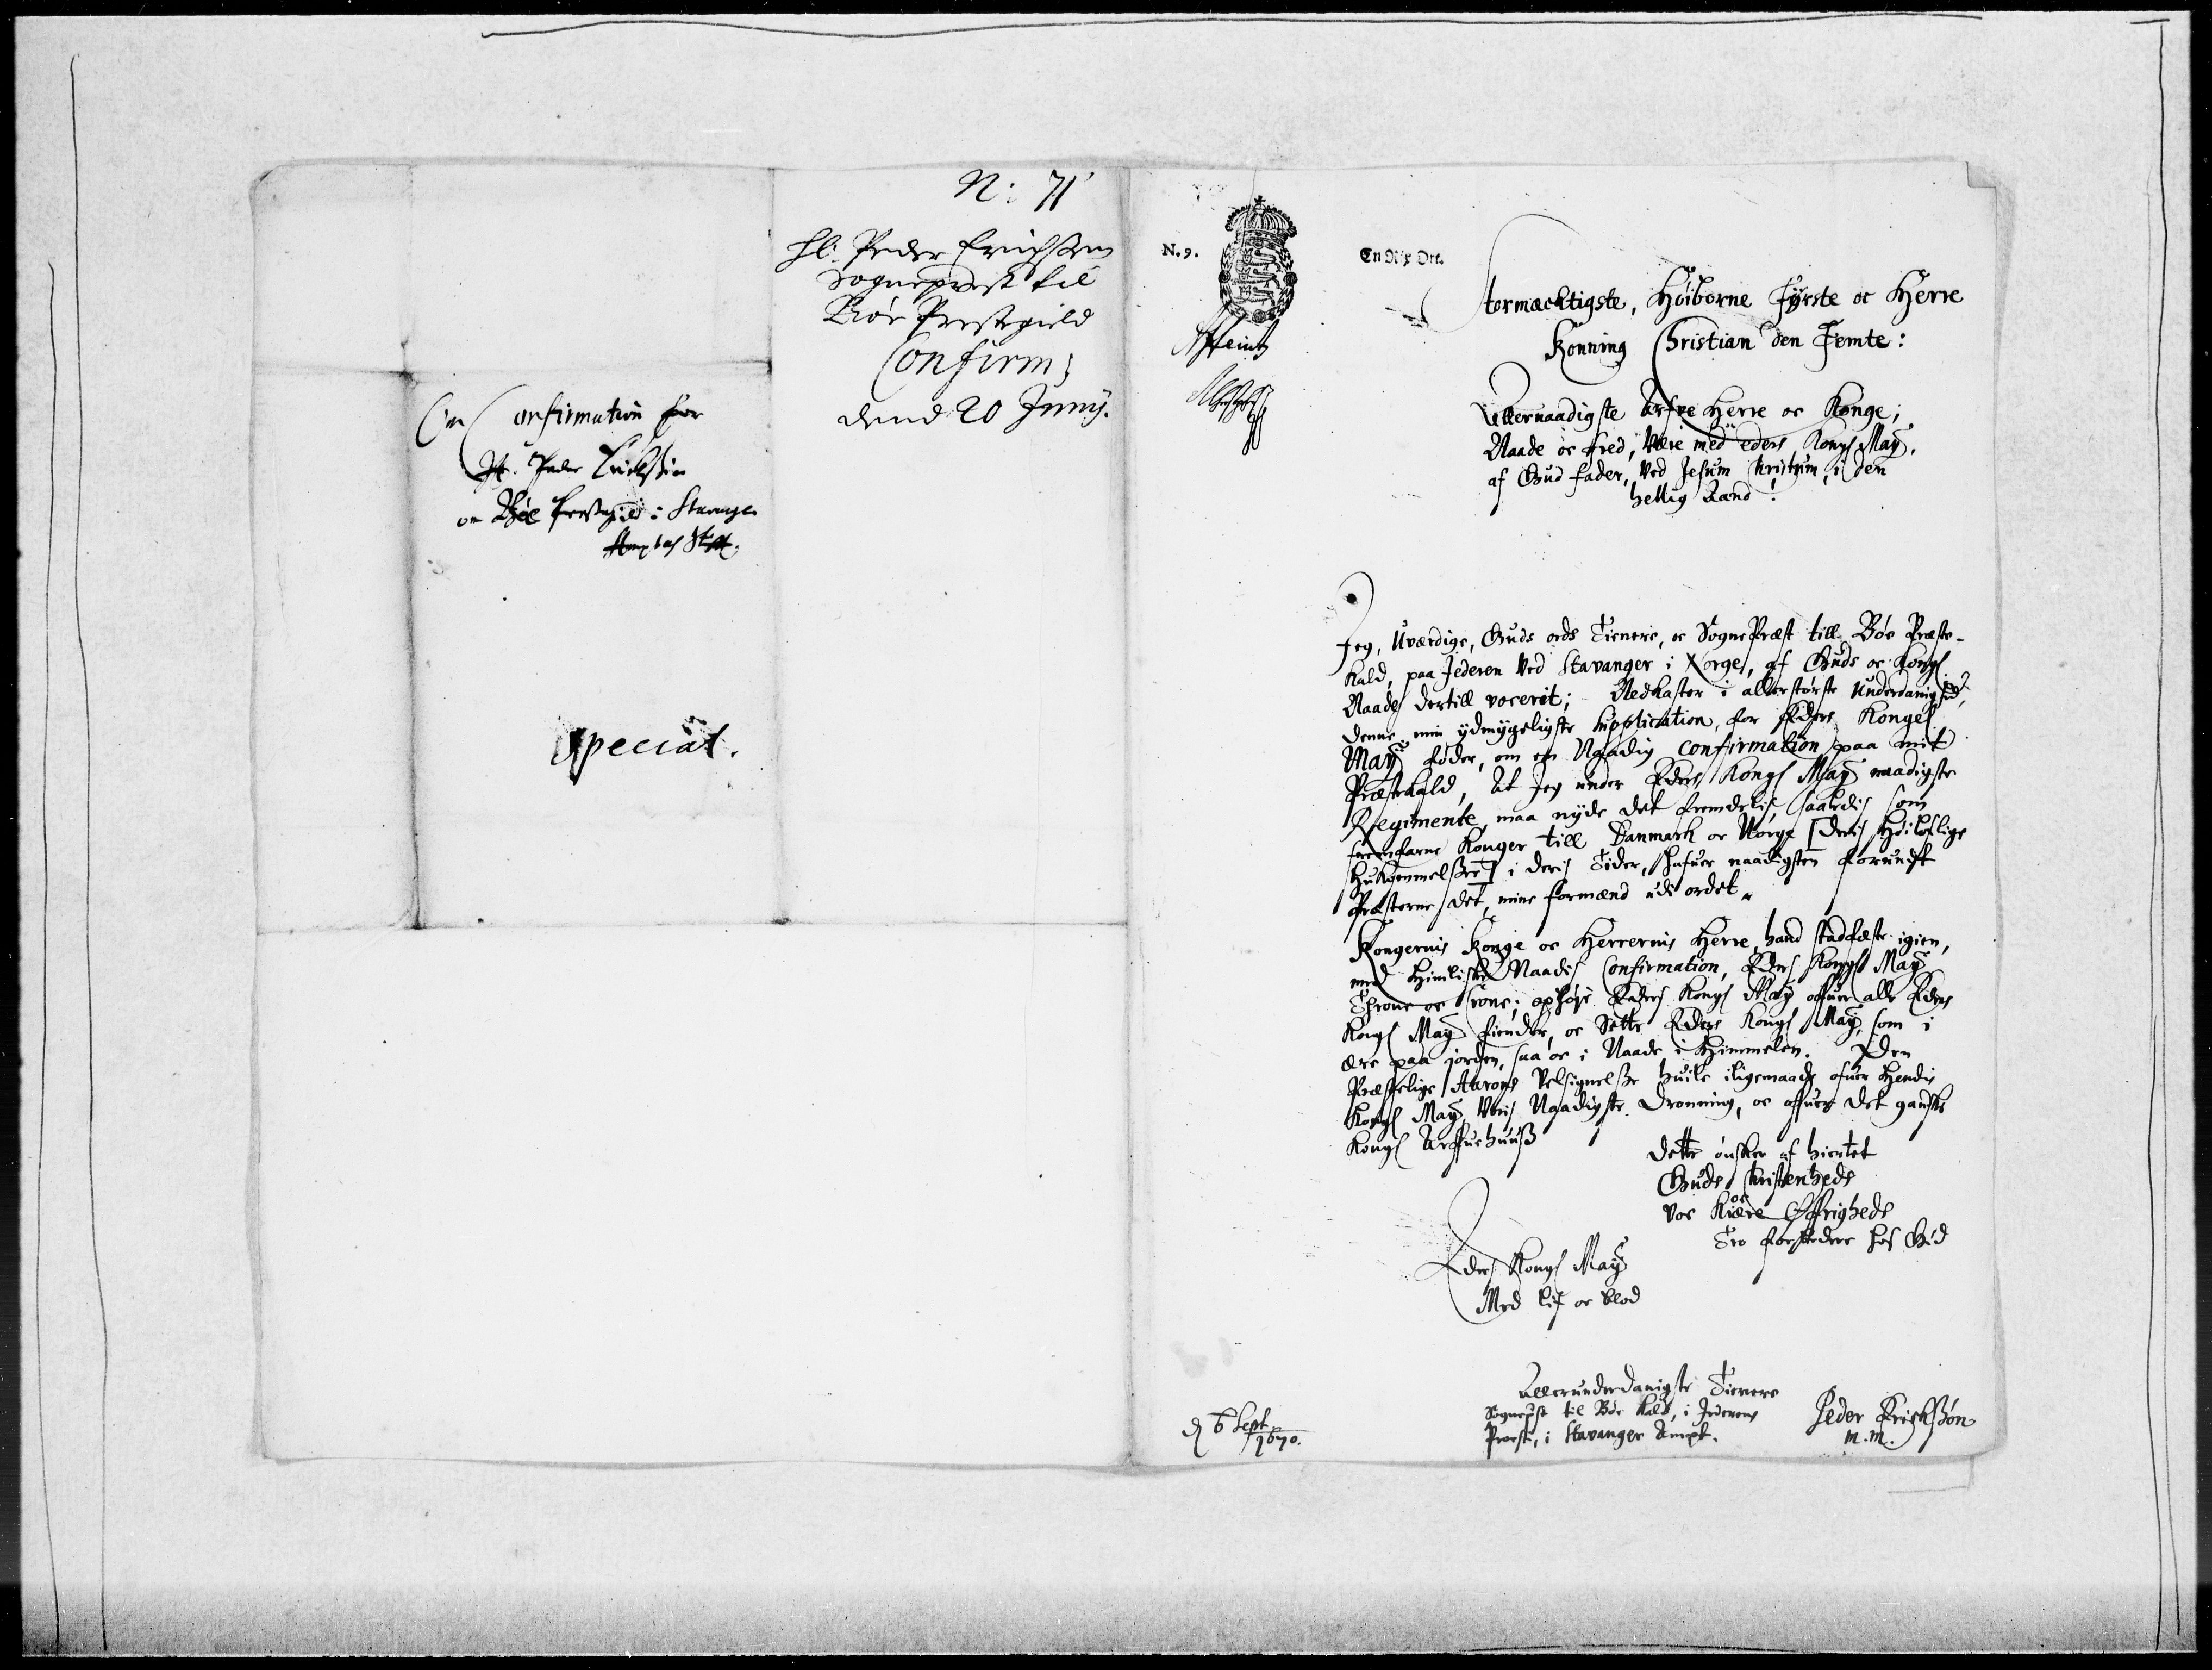 N: 71
Hl. Peder Erichssen
Sogneprest til
Böe Prestegield
Confirm;
dend 20 Junij.
En Confirmation for
Hr. Peder Erichssön
paa Böe Prestegield i Stavanger
Stift.
Special.
N. 9.
En Rix Ort.
Stormæchtigste, Høiborne Fÿrste oc Herre
Konning Christian den Femte:
Allernaadigste Arfve Herre oc Konge;
Naade oc Fred, være med eders Kongl May.
af Gud Fader, ved Jesum Christum, i den
hellig Aand.
Jeg, Uværdige, Guds ords Tienere, oc SognePræst till Böe Præste-
kald, paa Jederen ved Stavanger i Norge, af Guds oc Kongl
Naade dertill vocerit; Nedkaster i allerstørste Underdanighed,
denne min ydmygeligste supplication, for Eders Kongel
May föder, om en Naadig confirmation paa mit
Præstekald, At Jeg under Eders Kongl May naadigste
Regimente, maa nyde det fremdelis saaledis som
fremfarne Konger till Danmark oc Norge [deris Høiloflige
Hukommelsse] i deris Tider, hafuer naadigsten forundt
Præsterne det, mine formænd udi ordet.
Kongernis Konge oc Herrernis Herre, hand stadfæste igien,
med Himlische Naadis Confirmation, Eders Kongl May
Throne oc Crone; ophøje Eders Kongl May ofuer alle Eders
Kongl May fiender, oc Sette Eders Kongl May, som i
ære paa jorden, saa oc i Naade i Himmelen. Den
Præstelige Aarons Velsignelsse huile iligemaade ofuer Hendis
Kongl May Voris Naadigste Dronning, oc ofuer det gandske
Kongl Arffuehuuss
Dette ønsker af hiertet
Guds Christenheds
oc
vor Kiære Øffrigheds
Tro forbedere hos Gud
Eders Kongl May
Med lif oc blod
Allerunderdanigste Tienere
Sognepst til Böe kald, i Jederens
Præsti, i Stavanger Ampt.
Peder Erichssøn
m. m.
d 6 Sept
1670.